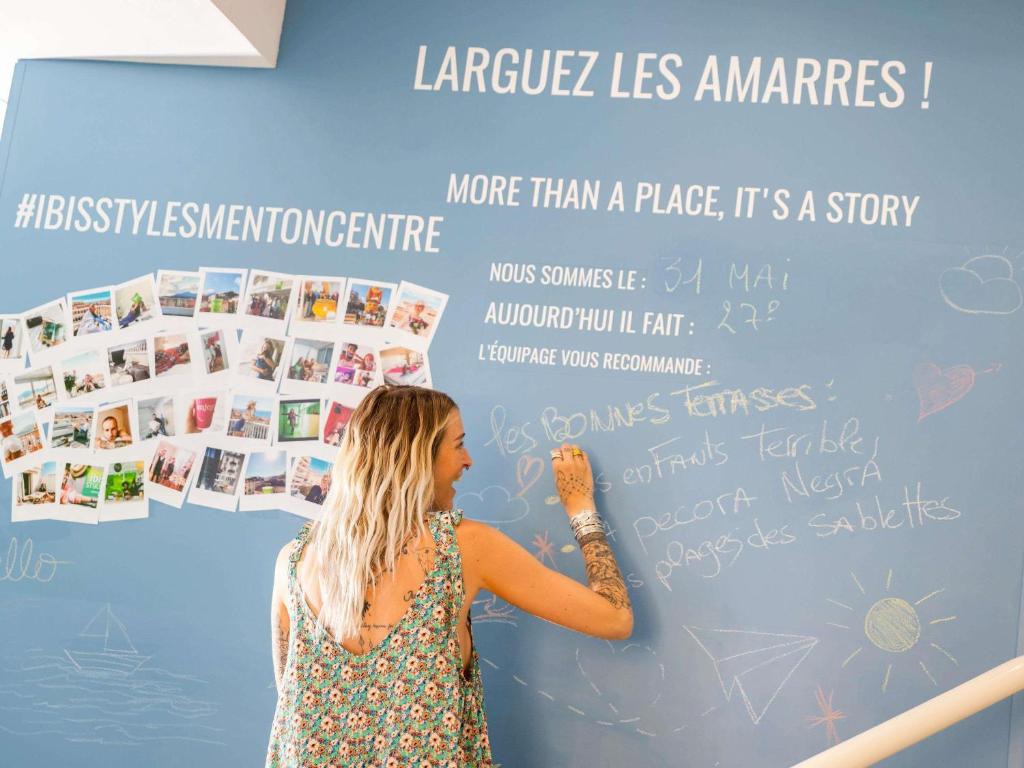 LARGUEZ LES AMARRES !
MORE THAN A PLACE, IT'S A STORY
#IBISSTYLESMENTONCENTRE
NOUS SOMMES LE : 31 MAi
AUJOURD'HUI IL FAIT : 27°
L'ÉQUIPAGE VOUS RECOMMANDE :
les BONNES TerrASSES :
s enfAnts Terrible,
pecorA NegrA
plages des sAblettes
ello